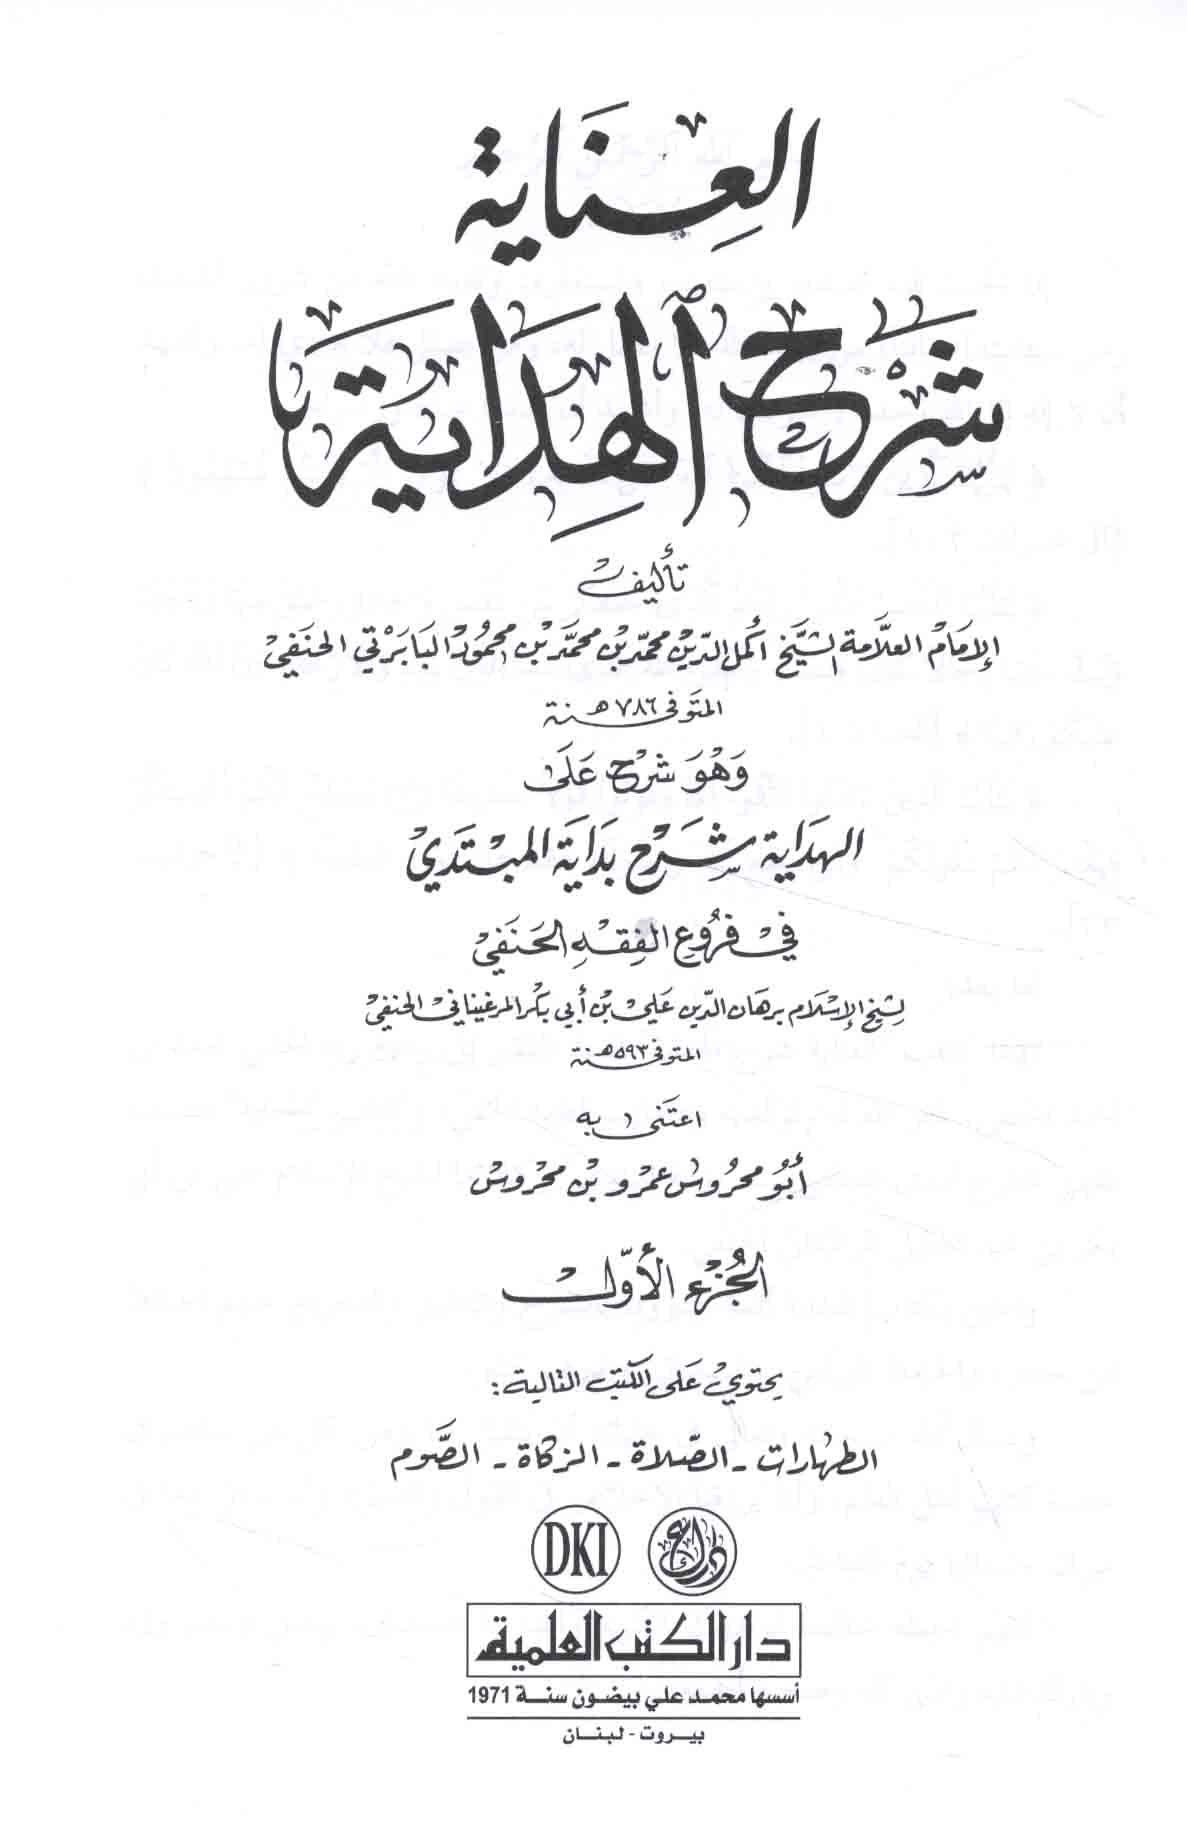 العِنَاية
شَرْح الهِدَاية
تأليف
الإمَام العلّامة الشّيخ أكمل الدّين محمّد بن محمَّد بن محمُود البَابَرْتي الحنَفي
المتوَفى ٧٨٦ هـ سنة
وَهُوَ شرح عَلَى
الهدَاية شَرح بدَاية المبْتَدَي
في فرُوع الفِقهِ الحَنَفي
لشيخ الإسْلام برهَان الدّين عَلي بن أبي بَكر المرغيناني الحنفي
المتوَفى ٥٩٣ هـ سنة
اعتَنى به
أبُو محروس عمرو بن محروس
الجُزء الأوّل
يحتوي عَلى الكتب التالية:
الطهَارات - الصَّلاة - الزكاة - الصَّوم
DKI
دار الكتب العلمية
أسسها محمد علي بيضون سنة 1971
بيروت - لبنان